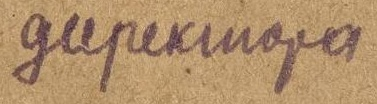 директора